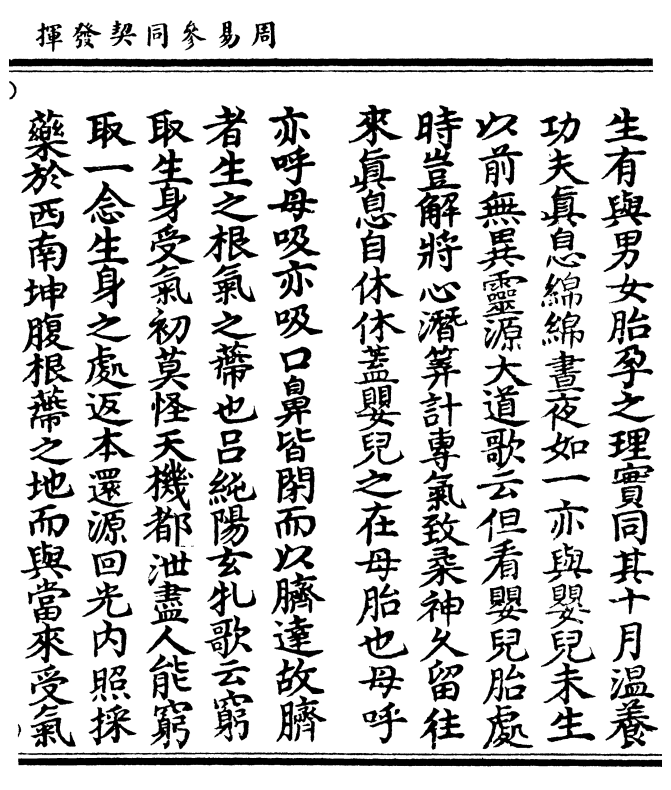 周易參同契發揮
生有與男女胎孕之理實同其十月溫養
功夫眞息綿綿晝夜如一亦與嬰兒未生
以前無異靈源大道歌云但看嬰兒胎處
時豈解將心潛筭計專氣致柔神久留往
來眞息自休休蓋嬰兒之在母胎也母呼
亦呼母吸亦吸口鼻皆閉而以臍達故臍
者生之根氣之蔕也呂純陽玄牝歌云窮
取生身受氣初莫怪天機都泄盡人能窮
取一念生身之處返本還源回光内照採
藥於西南坤腹根蔕之地而與當來受氣